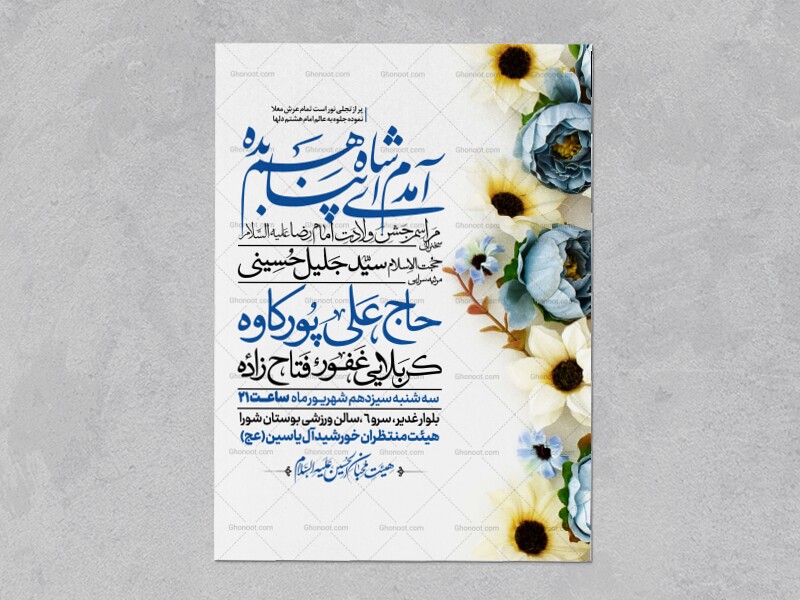 پر از تجلی نور است تمام عرش معلا
نموده جلوه به عالم امام هشتم دلها
آمدم ای شاه پناهم بده
مراسم جشن ولادت امام رضا علیه السلام
سخنران
حجت الاسلام سید جلیل حسینی
مرثیه سرایی
حاج علی پورکاوه
کربلایی غفور فتاح زاده
سه شنبه سیزدهم شهریور ماه ساعت ۲۱
بلوار غدیر، سرو ٦ ،سالن ورزشی بوستان شورا
هیئت منتظران خورشید آل یاسین (عج)
هیئت محبان الحسین علیه السلام
Ghonoot.com